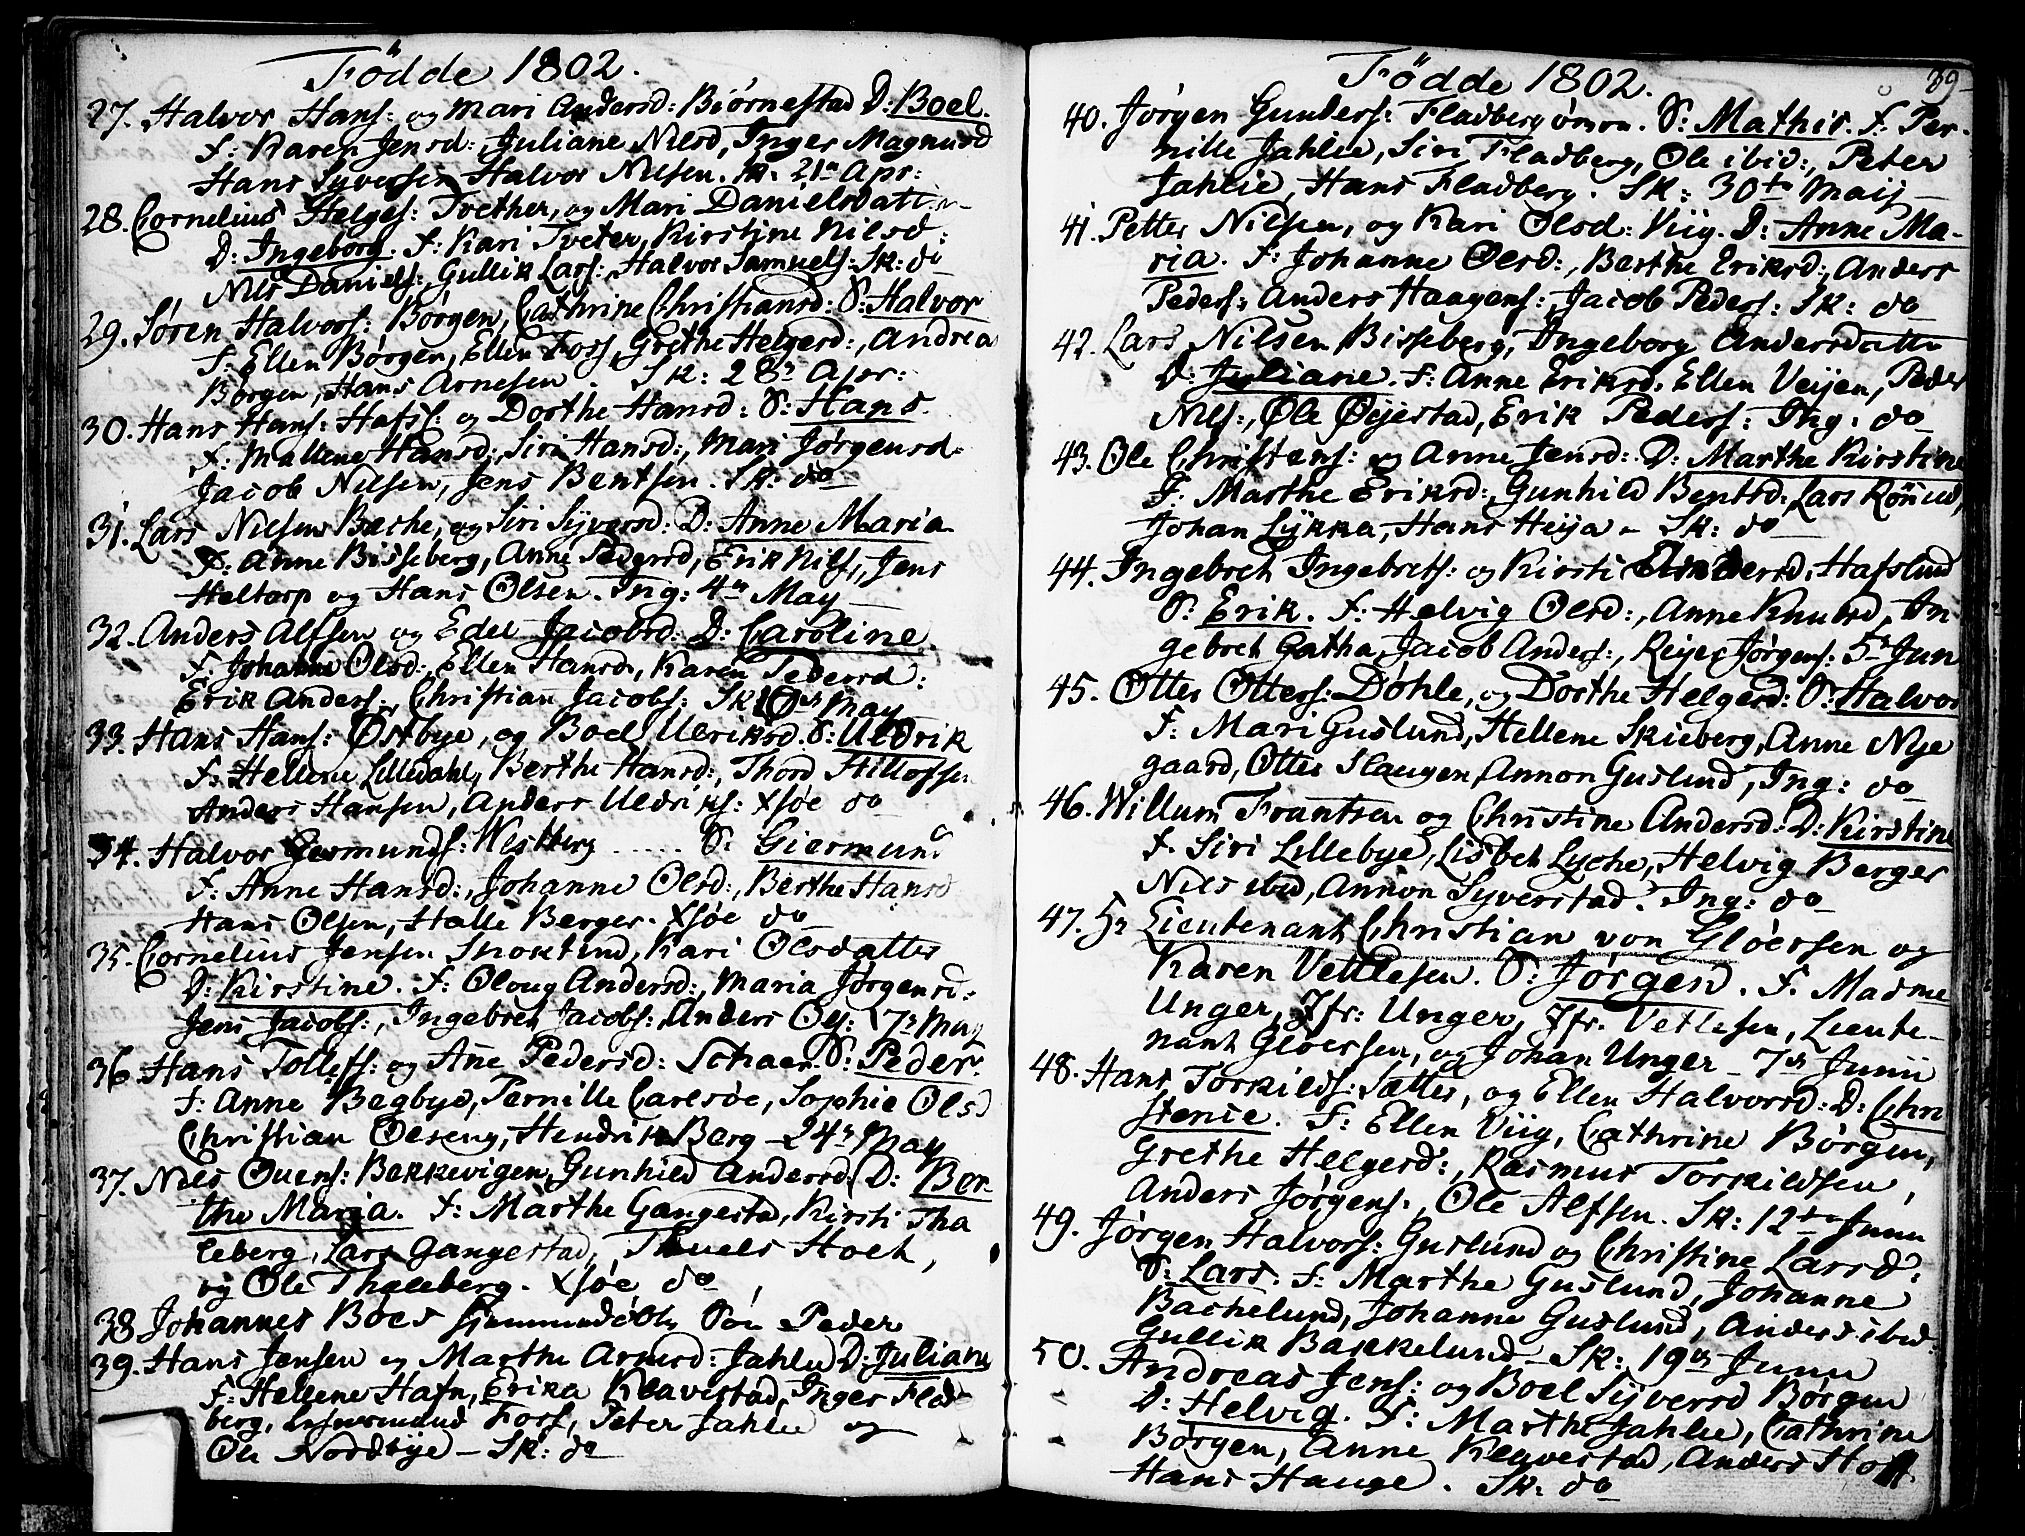 Fødde 1802.
27. Halvor Hans: og Mari Andersd: Biørnestad D: Boel.
F: Karen Jensd:, Juliane Nilsd, Inger Magnusd
Hans Syversen Halvor Nilsen. Sk. 21n Apr:
28. Cornelius Helges: Tvether, og Mari Danielsdatter
D: Ingeborg. F: Kari Tveter, Kirstine Nilsd:
Nils Daniels:, Gullik Lars:, Halvor Samuels: Sk: do
29. Søren Halvors: Børgen, Cathrine Christiansd: S: Halvor
F: Ellen Børgen, Ellen Fors, Grethe Helgesd:, Andrea
Børgen, Hans Arnesen. Sk: 28n Apr:
30. Hans Hans: Hafs: og Dorthe Hansd: S: Hans.
F: Mallene Hansd:, Siri Hansd:, Mari Jørgensd.
Jacob Nilsen, Jens Bentsen. Sk: do
31. Lars Nilsen Bæche, og Siri Syversd: D: Anne Maria
F: Anne Bisseberg, Anne Pedersd, Erik Nils:, Jens
Heltorp og Hans Olsen. Ing: 4n May
32. Anders Alfsen og Edel Jacobsd: D: Caroline.
F: Johanne Olsd:, Ellen Hansd:, Karen Pedersd:
Erik Anders:, Christian Jacobs: Sk: May
33. Hans Hans: Østbye, og Boel Ulriksd. S: Uldrik
F: Hellene Lilledahl, Berthe Hansd:, Thord Hillofsen
Anders Hansen, Anders Uldriks: Xsøe do
34. Halvor Germunds: Westberg ..... S: Giermund
F: Anne Hansd:, Johanne Olsd:, Berthe Hansd
Hans Olsen, Halle Berger. Xsøe do
35. Cornelius Jensen Snoklund, Kari Olsdatter
D: Kirstine. F: Oloug Andersd:, Maria Jørgensd:
Jens Jacobs:, Ingebret Jacobs:, Anders Oes: 7n May
36. Hans Tollefs: og Ane Pedersd: Schaer. S: Peder.
F: Anne Begbye, Pernille Carlsøe, Sophie Olsd
Christian Olseng, Hendrik Berg - 24n May
37. Nils Ouens: Bekkevigen, Gunhild Andersd: D: Ber-
the Maria. F: Marthe Gangestad, Kirsti Tha
leberg, Lars Gangestad, Truels Holt,
og Ole Thaleberg. Xsøe do
38. Johannes Boes Søn Peder
39. Hans Jensen og Marthe Arnesd: Jahlie D: Juliane
F: Hellene Hafn, Erika Klavestad, Inger Flad-
berg, Fors, Peter Jahlie og
Ole Nordbye - Sk: do
Fødde 1802.
39
40. Jørgen Gunders: Fladberg S: Mathis. F: Per-
nille Jahlie, Siri Fladberg, Ole ibid:, Peter
Jahlie, Hans Fladberg. Sk: 30te Maij
41. Petter Nilsen, og Kari Olsd: Viig. D: Anne Ma-
ria. F: Johanne Olsd:, Berthe Eriksd:, Anders
Peders:, Anders Haagens:, Jacob Peders: Sk: do
42. Lars Nilsen Bisseberg, Ingeborg Andersdatter
D: Juliane. F: Anne Eriksd. Ellen Veijen, Peder
Nils:, Ole Øijestad, Erik Peders: Ing: do
43. Ole Christens: og Anne Jensd: D: Marthe Kirstine
F: Marthe Eriksd:, Gunhild Bentsd: Lars Rønned,
Johan Lykka, Hans Heija - Sk: do
44. Ingebret Ingebrets: og Kirsti Hafslund
S: Erik. F: Helvig Olsd:, Anne Knudsd, In-
gebret Gatha, Jacob Anders:, Reyer Jørgens: 5n Jun
45. Otter Otters: Døhle, og Dorthe Helgesd: S: Halvor
F: Mari Guslund, Hellene Skieberg, Anne Nye
gaard, Otter Slaugen, Annon Guslund, Ing: do
46. Willum Frantsen og Christine Andersd: D: Kirstine
F: Siri Lillebye, Lisbet Lyche, Helvig Berger
Nils ibid, Annon Syverstad. Ing: do
47. Hr Lieutenant Christian von Gløersen og
Karen Vettlesen. S: Jørgen. F. Madme
Unger, Jfr: Unger, Jfr. Vetlesen, Lieute-
nant Gløersen, og Johan Unger - 7de Junii
48. Hans Torkilds: Sætter, og Ellen Halvorsd: D: Chri
stence. F: Ellen Viig, Cathrine Børgen,
Grethe Helgesd:, Rasmus Torkildsen,
Anders Jørgens:, Ole Alfsen. Sk: 12te Junii
49. Jørgen Halvors: Guslund og Christine Larsd:
S: Lars. F: Marthe Guslund, Johanne
Bachelund, Johanne Guslund, Anders ibid:
Gullik Bakkelund - Sk: 19de Junii
50. Andreas Jens: og Boel Syversd Børgen
D: Helvig. F: Marthe Jahlie, Cathrine
Børgen, Anne Klavestad, Anders Hoff
Hans Hauge. Sk: do